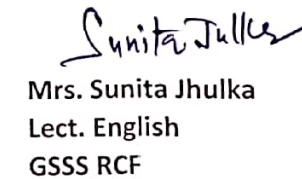 Sunita Julka
Mrs. Sunita Jhulka
Lect. English
GSSS RCF